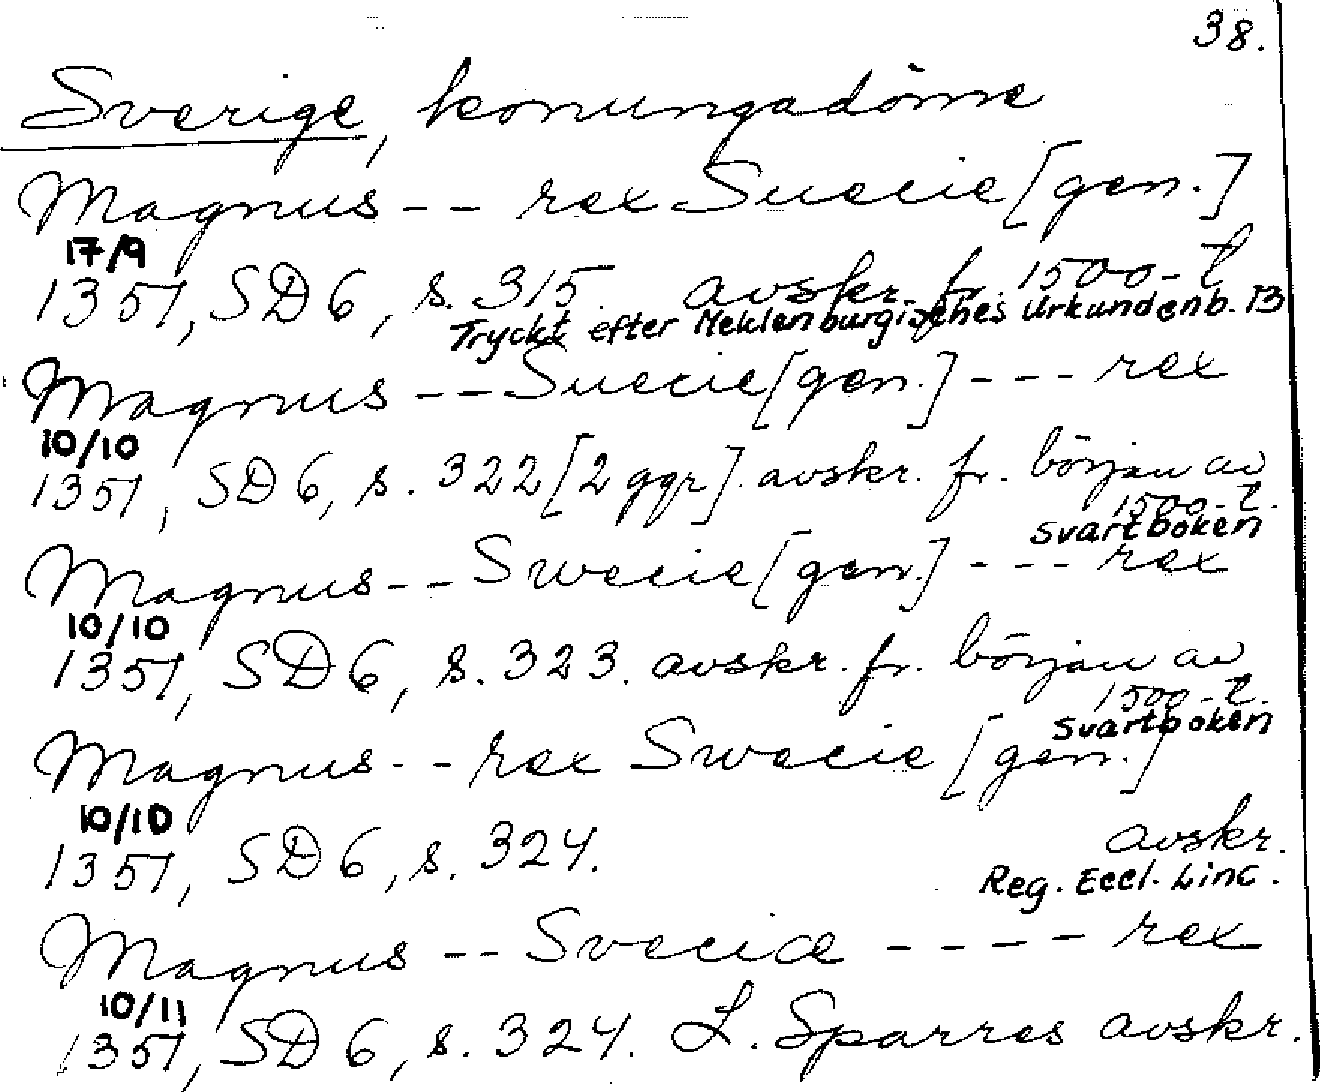 38.
Sverige, konungadöme
Magnus -- rex Suecie [gen.]
17/9
1351, SD 6, s. 315. avskr. fr. 1500-t
Tryckt efter Meklenburgisches Urkundenb. 13
Magnus -- Suecie [gen.] --- rex
10/10
1351, SD 6, s. 322 [2 ggr]. avskr. fr. början av
1500-t.
Svartboken
Magnus -- Swecie [gen.] --- rex
10/10
1351, SD 6, s. 323. avskr. fr. början av
1500-t.
Svartboken
Magnus -- rex Swecie [gen.]
10/10
1351, SD 6, s. 324. avskr.
Reg. Eccl. Linc.
Magnus -- Sveciæ ---- rex
10/11
1351, SD 6, s. 324. L. Sparres avskr.